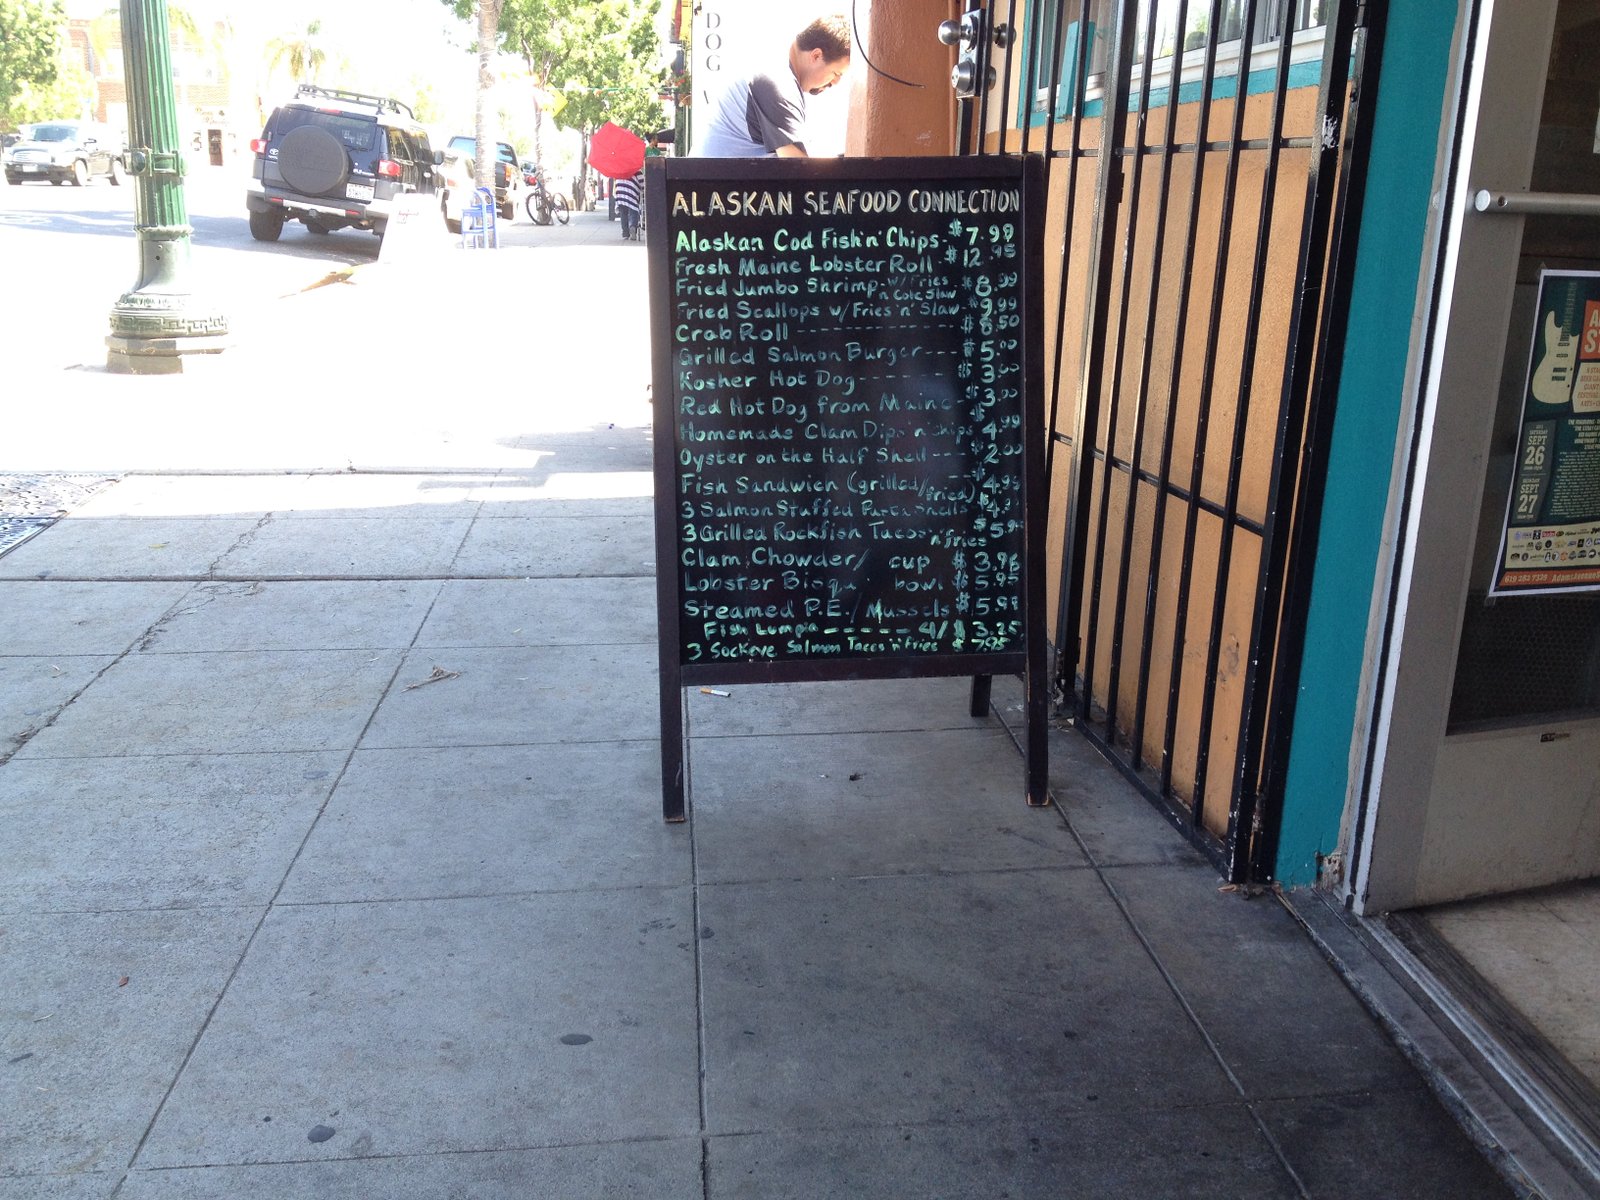 DOG
ALASKAN SEAFOOD CONNECTION
Alaskan Cod Fish 'n' Chips - $7.99
Fresh Maine Lobster Roll - $12.95
Fried Jumbo Shrimp - w/ Fries 'n Cole Slaw $8.99
Fried Scallops w/ Fries 'n' Slaw - $9.99
Crab Roll ------------- $8.50
Grilled Salmon Burger --- $5.00
Kosher Hot Dog ------- $3.00
Red Hot Dog from Maine - $3.00
Homemade Clam Dip 'n chips $4.99
Oyster on the Half Shell --- $2.00
Fish Sandwich (grilled/fried) -- $4.95
3 Salmon Stuffed Pasta Shells
3 Grilled Rockfish Tacos 'n fries $5.95
Clam Chowder / cup $3.96
Lobster bowl $5.95
Steamed P.E. / Mussels $5.99
Fish Lumpia ----- 4/$3.25
3 Sockeye Salmon Tacos 'n' Fries $7.95
SATURDAY
SEPT
26
SEPT
27
619 282 7329